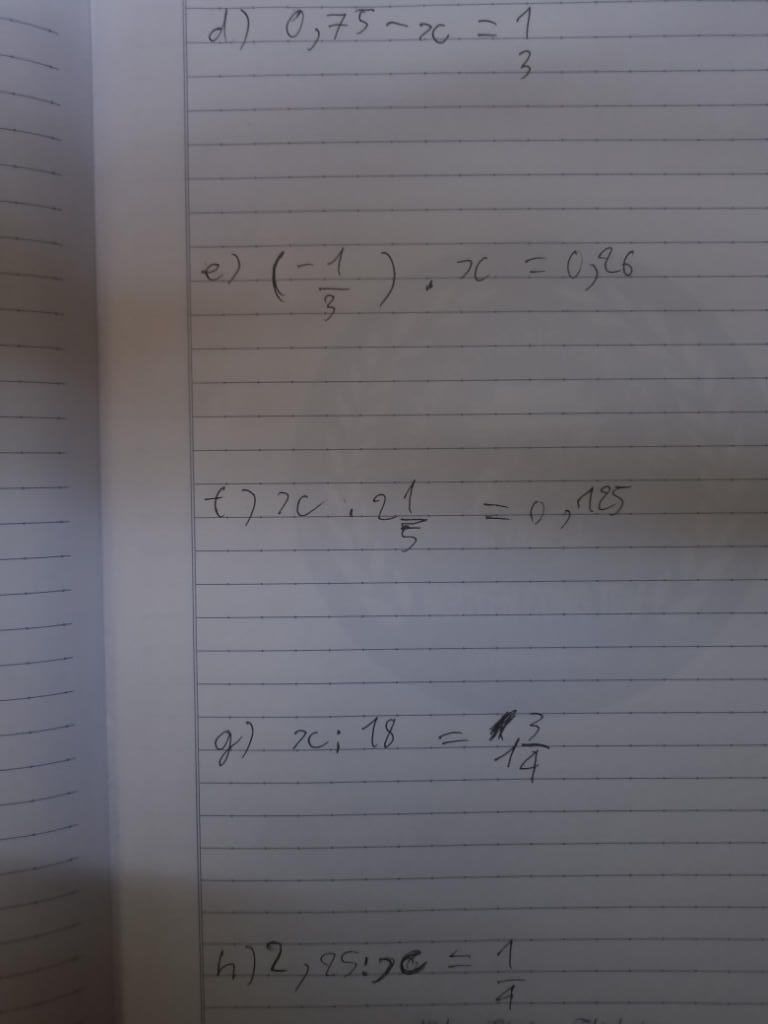 d) 0,75 - x = 1/3
e) (-1/3) . x = 0,26
f) x . 2 1/5 = 0,125
g) x : 18 = 1 3/4
h) 2,25 : x = 1/4